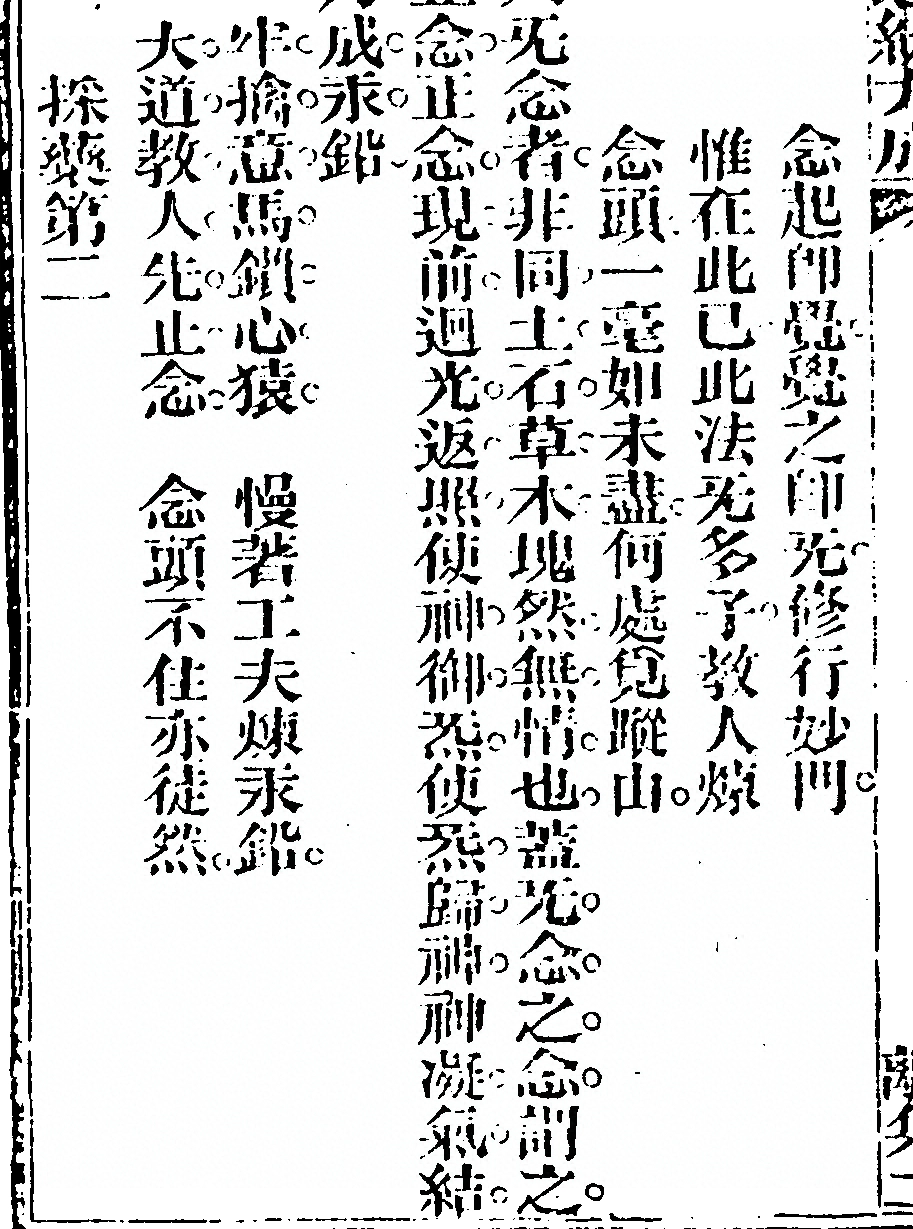 念起即覺覺之即旡修行妙門
惟在此已此法旡多子教人煉
念頭一毫如未盡何處覓蹤山
旡念者非同土石草木塊然無情也蓋旡念之念謂之
念正念現前迴光返照使神御炁使炁歸神神凝氣結
成汞鉛
牢擒意馬鎖心猿　慢著工夫煉汞鉛
大道教人先止念　念頭不住亦徒然
採藥第二